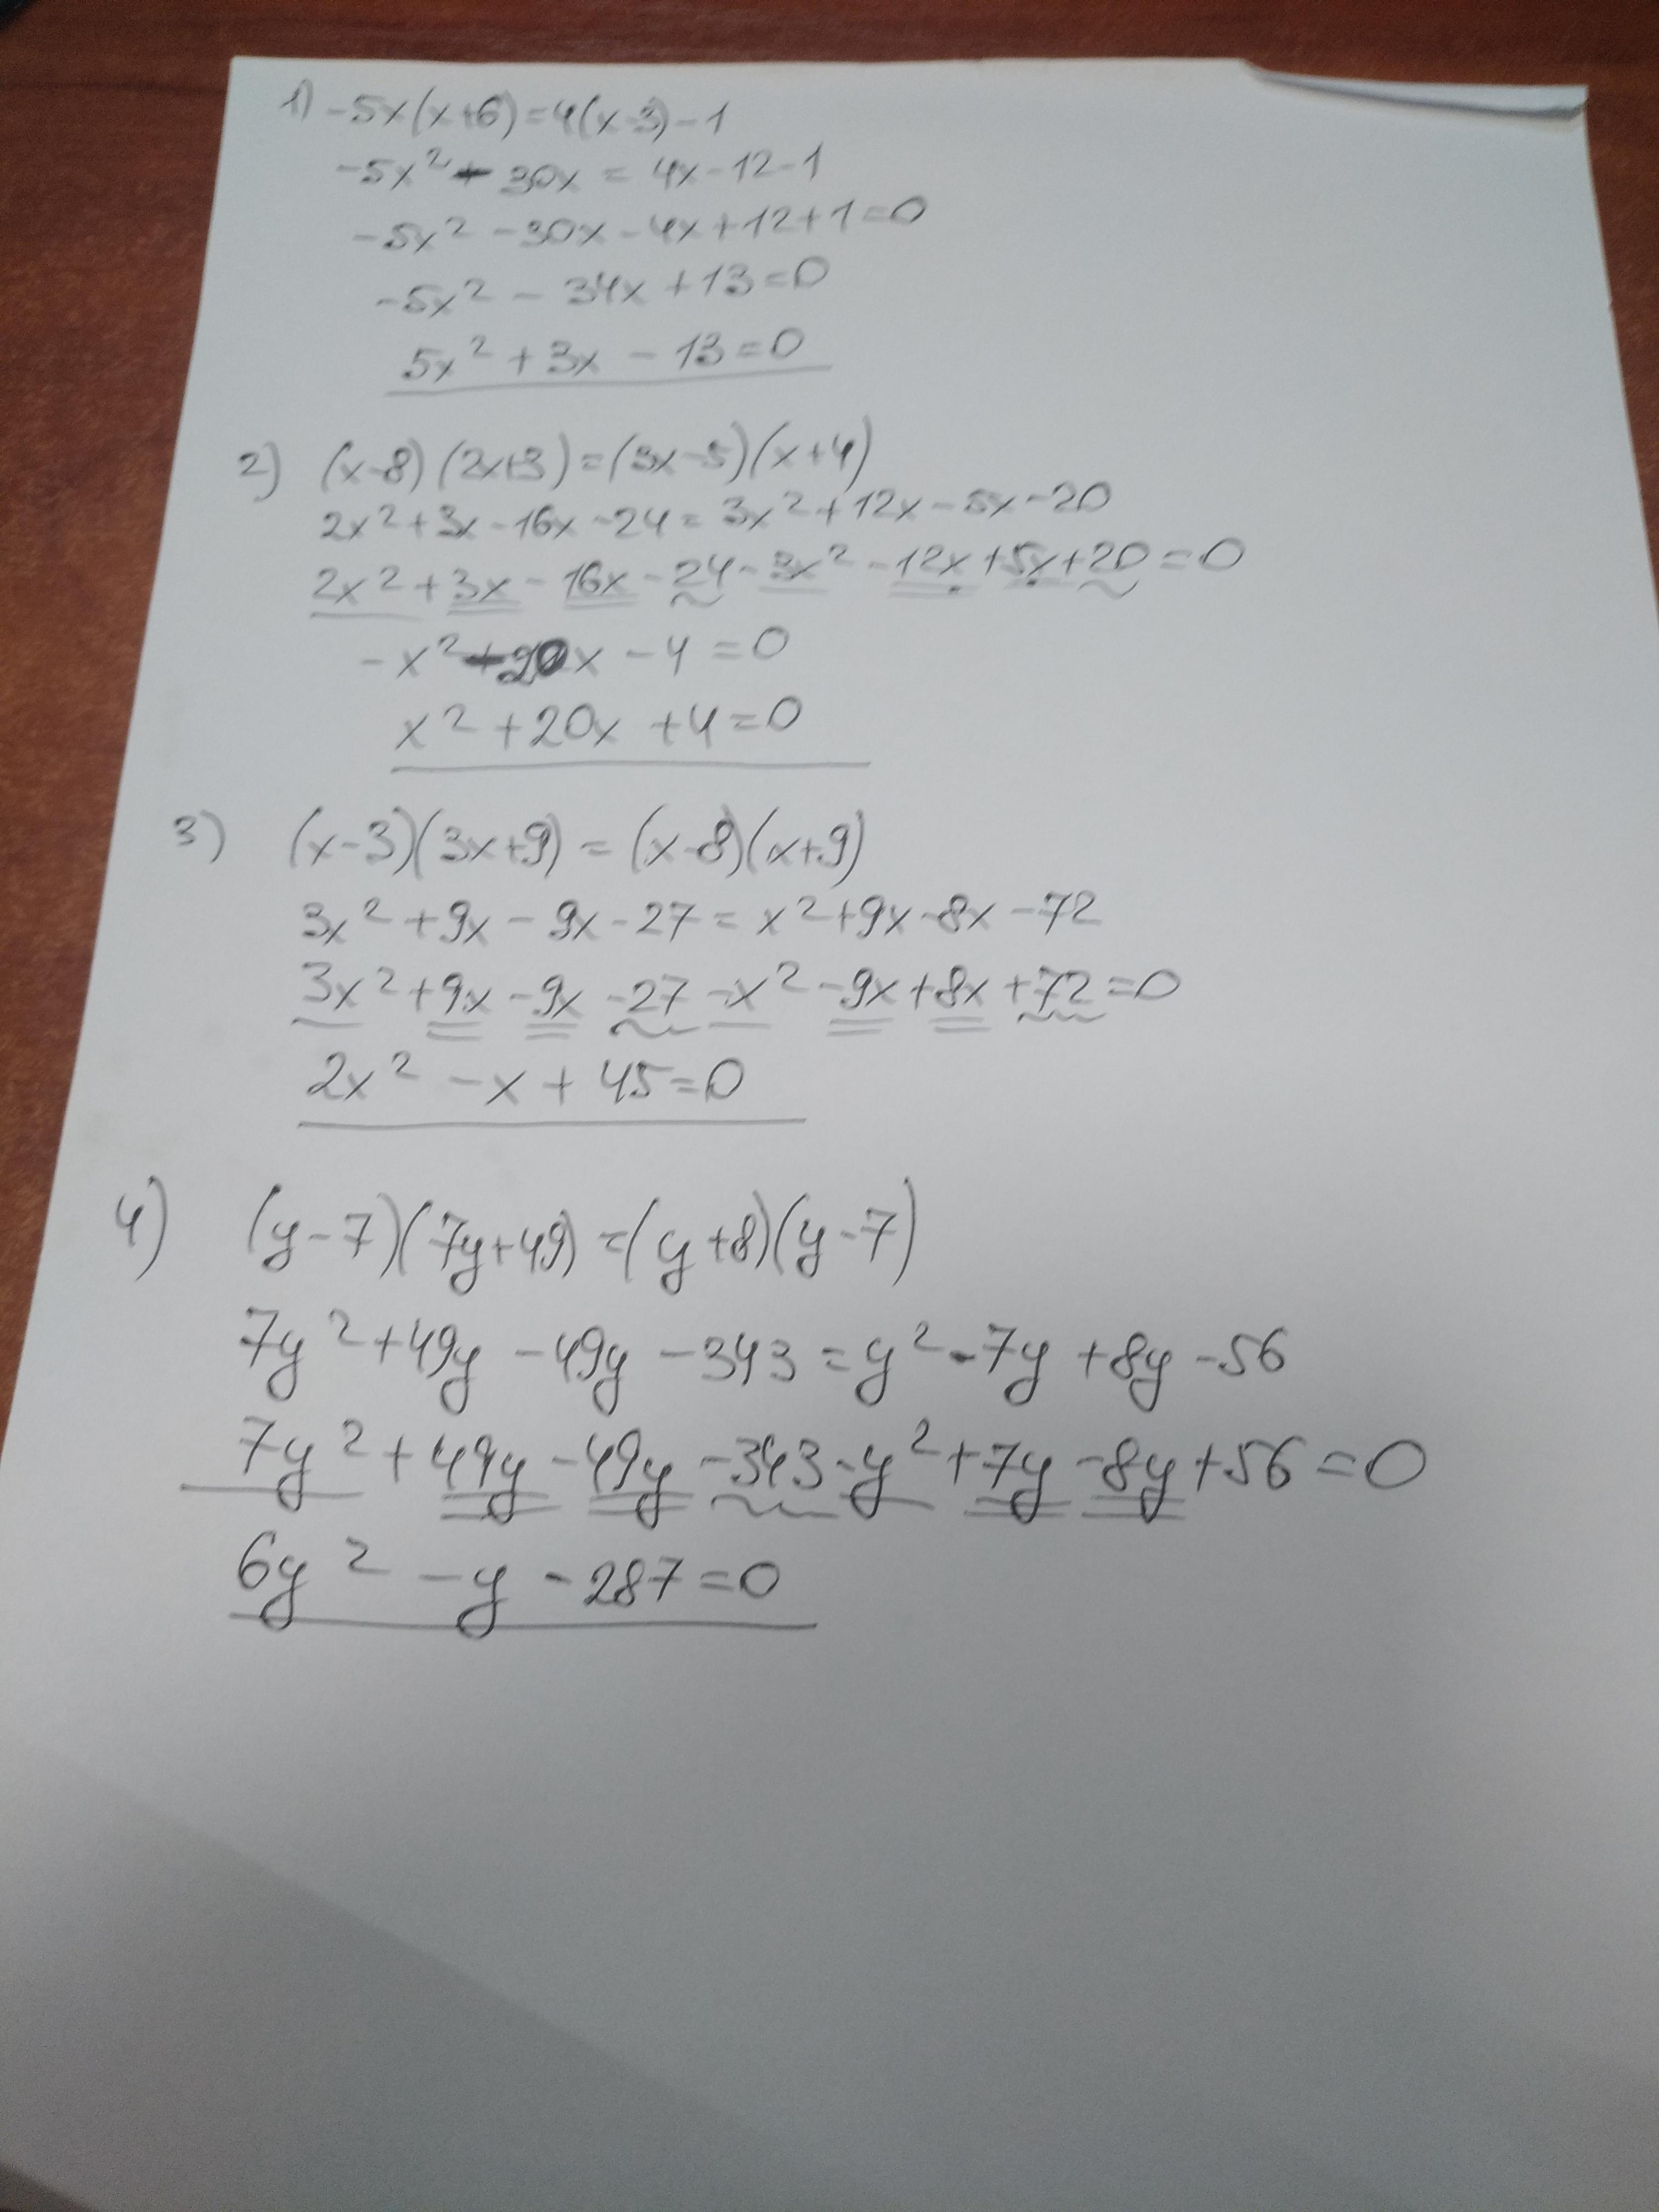 1) -5x(x+6)=4(x-3)-1
-5x² - 30x = 4x-12-1
-5x² -30x-4x+12+1=0
-5x² - 34x+13=0
5x² +3x - 13=0
2) (x-8)(2x+3)=(3x-5)(x+4)
2x²+3x-16x-24=3x²+12x-5x-20
2x²+3x-16x-24-3x²-12x+5x+20=0
-x²-20x-4=0
x²+20x+4=0
3) (x-3)(3x+9)=(x-8)(x+9)
3x²+9x-9x-27=x²+9x-8x-72
3x²+9x-9x-27-x²-9x+8x+72=0
2x²-x+45=0
4) (y-7)(7y+49)=(y+8)(y-7)
7y²+49y-49y-343=y²-7y+8y-56
7y²+49y-49y-343-y²+7y-8y+56=0
6y²-y-287=0